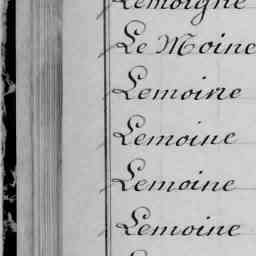 Lemoigne
Le Moine
Lemoine
Lemoine
Lemoine
Lemoine